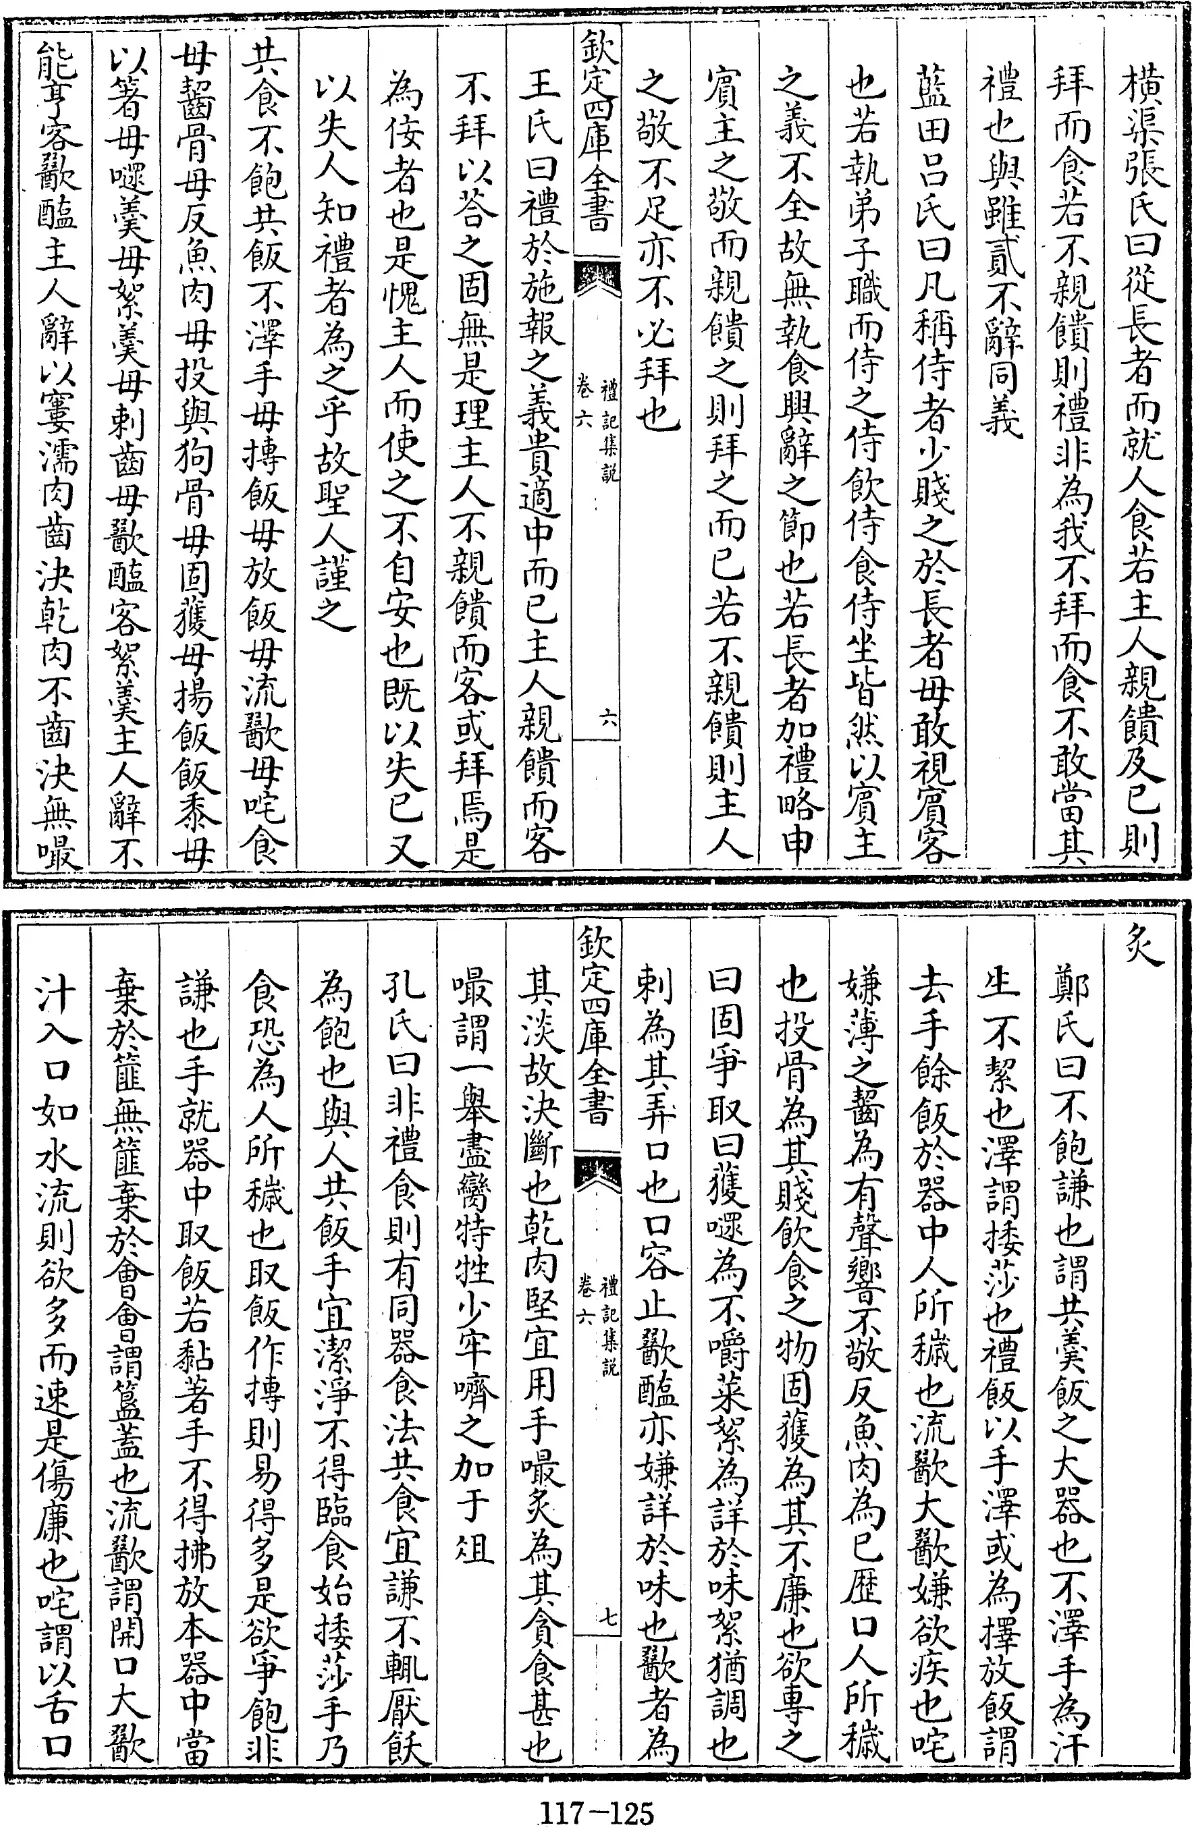 橫渠張氏曰從長者而就人食若主人親饋及已則
拜而食若不親饋則禮非為我不拜而食不敢當其
禮也與雖貳不辭同義
藍田呂氏曰凡稱侍者少賤之於長者毋敢視賓客
也若執弟子職而侍之侍飲侍食侍坐皆然以賓主
之義不全故無執食興辭之節也若長者加禮略申
賓主之敬而親饋之則拜之而已若不親饋則主人
之敬不足亦不必拜也
欽定四庫全書
禮記集説
卷六
六
王氏曰禮於施報之義貴適中而已主人親饋而客
不拜以荅之固無是理主人不親饋而客或拜焉是
為佞者也是愧主人而使之不自安也既以失已又
以失人知禮者為之乎故聖人謹之
共食不飽共飯不澤手毋摶飯毋放飯毋流歠毋咤食
毋齧骨毋反魚肉毋投與狗骨毋固獲毋揚飯飯黍毋
以箸毋嚃羹毋絮羹毋刺齒毋歠醢客絮羹主人辭不
能亨客歠醢主人辭以窶濡肉齒決乾肉不齒決無嘬
炙
鄭氏曰不飽謙也謂共羹飯之大器也不澤手為汗
生不絜也澤謂捼莎也禮飯以手澤或為擇放飯謂
去手餘飯於器中人所穢也流歠大歠嫌欲疾也咤
嫌薄之齧為有聲響不敬反魚肉為已歷口人所穢
也投骨為其賤飲食之物固獲為其不廉也欲專之
曰固爭取曰獲嚃為不嚼菜絮為詳於味絮猶調也
刺為其弄口也口容止歠醢亦嫌詳於味也歠者為
欽定四庫全書
禮記集説
卷六
七
其淡故決斷也乾肉堅宜用手嘬炙為其貪食甚也
嘬謂一舉盡臠特牲少牢嚌之加于俎
孔氏曰非禮食則有同器食法共食宜謙不輒厭飫
為飽也與人共飯手宜潔淨不得臨食始捼莎手乃
食恐為人所穢也取飯作摶則易得多是欲爭飽非
謙也手就器中取飯若黏著手不得拂放本器中當
棄於篚無篚棄於㑹㑹謂簋蓋也流歠謂開口大歠
汁入口如水流則欲多而速是傷廉也咤謂以舌口
117-125